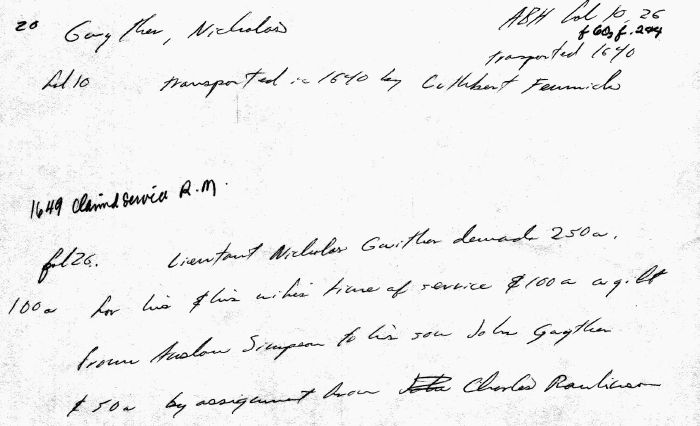 20 Gayther, Nicholas ABH Lol 10, 26
f 60, f. 244
transported 1640
fol 10 transported in 1640 by Cuthbert Fennick
1649 Claimd Service R.M.
fol 26. Lieutant Nicholas Gaither demads 250a.
100a for his & his wifes time of service & 100a a gift
from Simpson to his son John Gayther
& 50a by assigment from John Charles Rawlinson